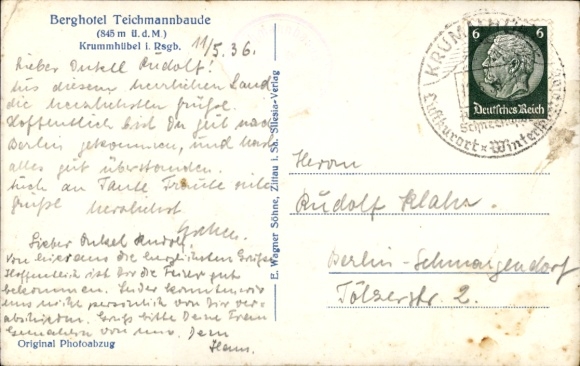 Berghotel Teichmannbaude
(845 m ü. d. M.)
Krummhübel i. Rsgb.
11/5. 36.
Lieber Onkel Rudolf!
Aus diesem herrlichen Land
die herzlichsten Grüße.
Hoffentlich bist Du gut nach
Berlin gekommen, und hast
alles gut überstanden.
Auch an Tante Traute viele
Grüße herzlichst
Lieber Onkel Rudolf,
Von hier aus die herzlichsten Grüße
Hoffentlich ist Dir die Feier gut
bekommen. Leider konnten wir
uns nicht persönlich von Dir ver-
abschieden. Grüß bitte Deine Frau
Gemahlin von uns. Dein
Hans.
Original Photoabzug
E. Wagner Söhne, Zittau i. Sa. Silesia-Verlag
KRUMMHÜBEL
Luftkurort x Wintersport
6 6
Deutsches Reich
Herrn
Rudolf Klahr.
Berlin-Schmargendorf
Tölzerstr. 2.